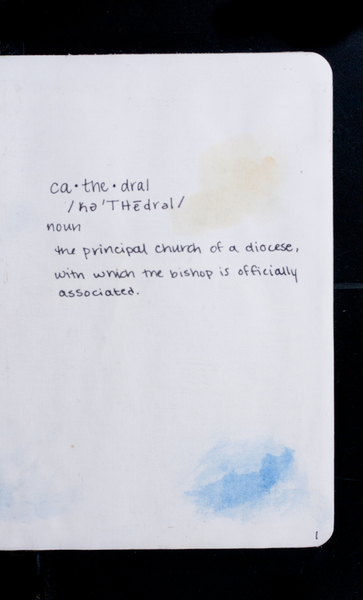 ca•the•dral
/kə'THēdrəl/
noun
the principal church of a diocese,
with which the bishop is officially
associated.
1